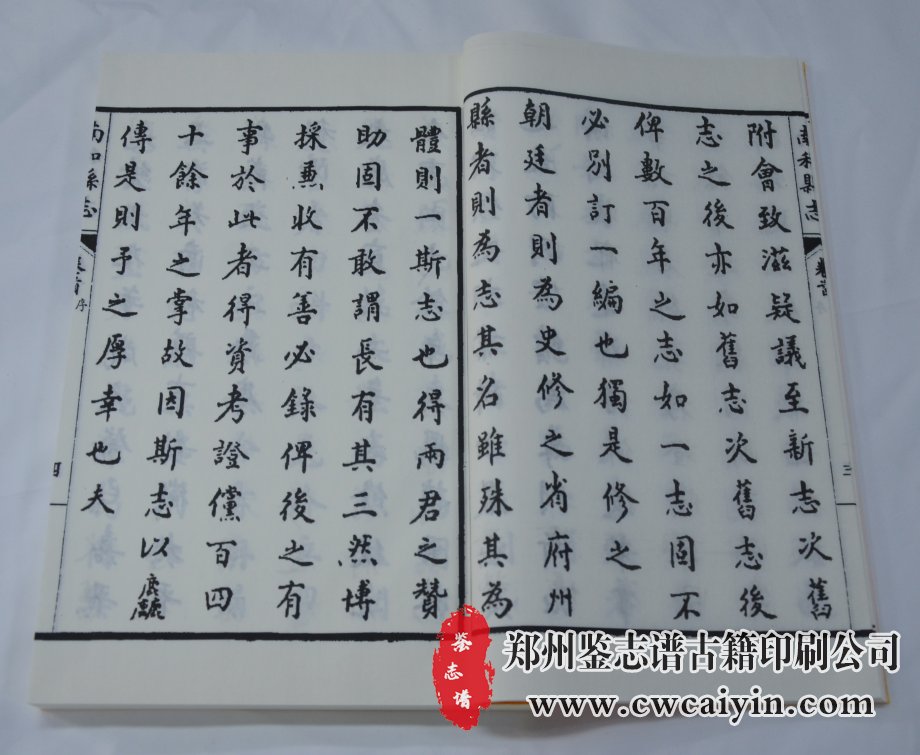 南和縣志
卷首
三
附會致滋疑議至新志次舊
志之後亦如舊志次舊志後
俾數百年之志如一志固不
必別訂一編也獨是修之
朝廷者則為史修之省府州
縣者則為志其名雖殊其為
體則一斯志也得兩君之贊
助固不敢謂長有其三然博
採兼收有善必錄俾後之有
事於此者得資考證儻百四
十餘年之掌故因斯志以
傳是則予之厚幸也夫
南和縣志
卷首
序
四
鉴志谱
郑州鉴志谱古籍印刷公司
www.cwcaiyin.com